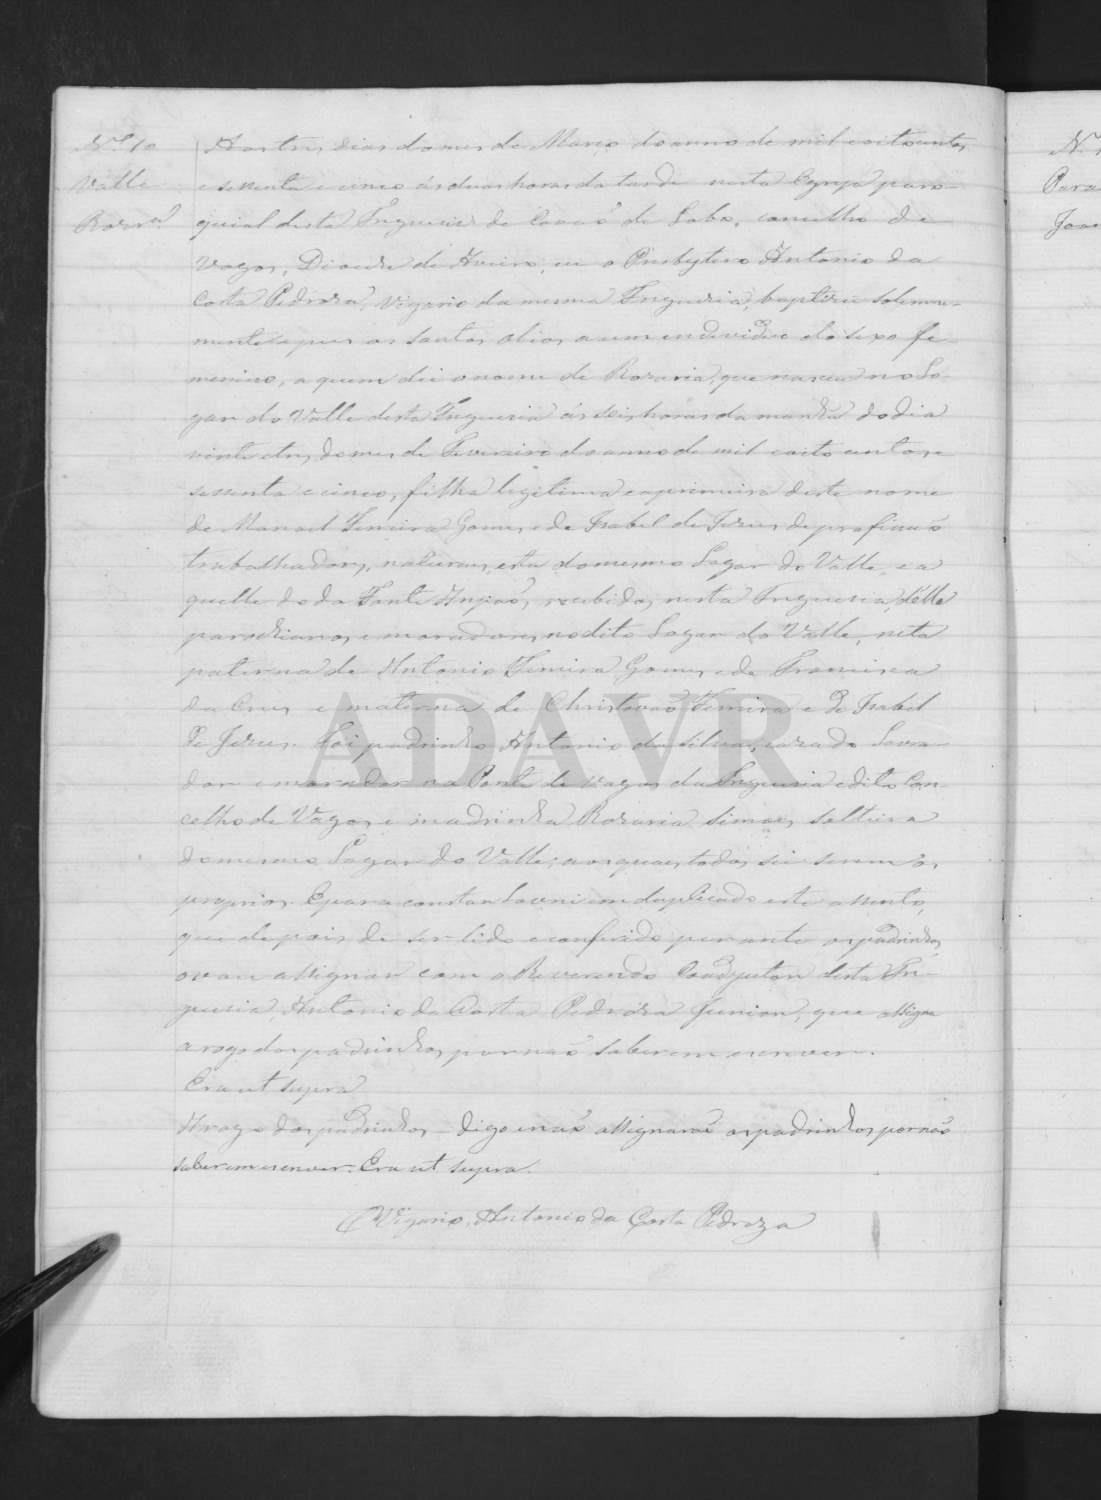 Nº 10
Valle
Rozrª
Aos tres dias do mes de Março do anno de mil e oito centos
e sessenta e cinco ás duas horas da tarde nesta Egreja paro-
quial desta Freguesia de Covaõ de Lobo, concelho de
Vagos, Diocese de Aveiro, eu o Presbytero Antonio da
Costa Pedroza, Vigario da mesma Freguesia, baptizei solemne-
mente e pus os santos olios a um individuo do sexo fe-
menino, a quem dei o nome de Rozaria, que nasceu no Lo-
gar do Valle desta Freguesia ás seis horas da manhã do dia
vinte e tres do mes de Fevereiro do anno de mil e oito centos e
sessenta e cinco, filha legitima e a primeira deste nome
de Manoel Ferreira Gomes e de Isabel de Jezus, de profissaõ
trabalhadores, naturaes, esta do mesmo Logar do Valle, e a
quelle do da Fonte Anjaõ, recebidos nesta Freguesia, d'ella
parochianos e moradores no dito Logar do Valle, neta
paterna de Antonio Ferreira Gomes e de Francisca
da Crus e materna de Christovaõ Ferreira e de Isabel
de Jezus. Foi padrinho Antonio da Silva, cazado Lavra-
dor e morador na Ponte de Vagos da Freguesia e dito Con-
celho de Vagos e madrinha Rozaria Simoes, solteira
do mesmo Logar do Valle; aos quaes todos sei serem os
proprios. E para constar lavrei em duplicado este assento,
que depois de ser lido e conferido perante os padrinhos,
o vou assignar com o Reverendo Coadjutor desta Fre-
guesia, Antonio da Costa Pedroza Junior, que assigna
a rogo dos padrinhos por naõ saberem escrever.
Era ut supra
A rogo dos padrinhos – digo e naõ assignaraõ os padrinhos por naõ
saberem escrever. Era ut supra.
O Vigario, Antonio da Costa Pedroza
ADAVR
Nº
Para
Joa